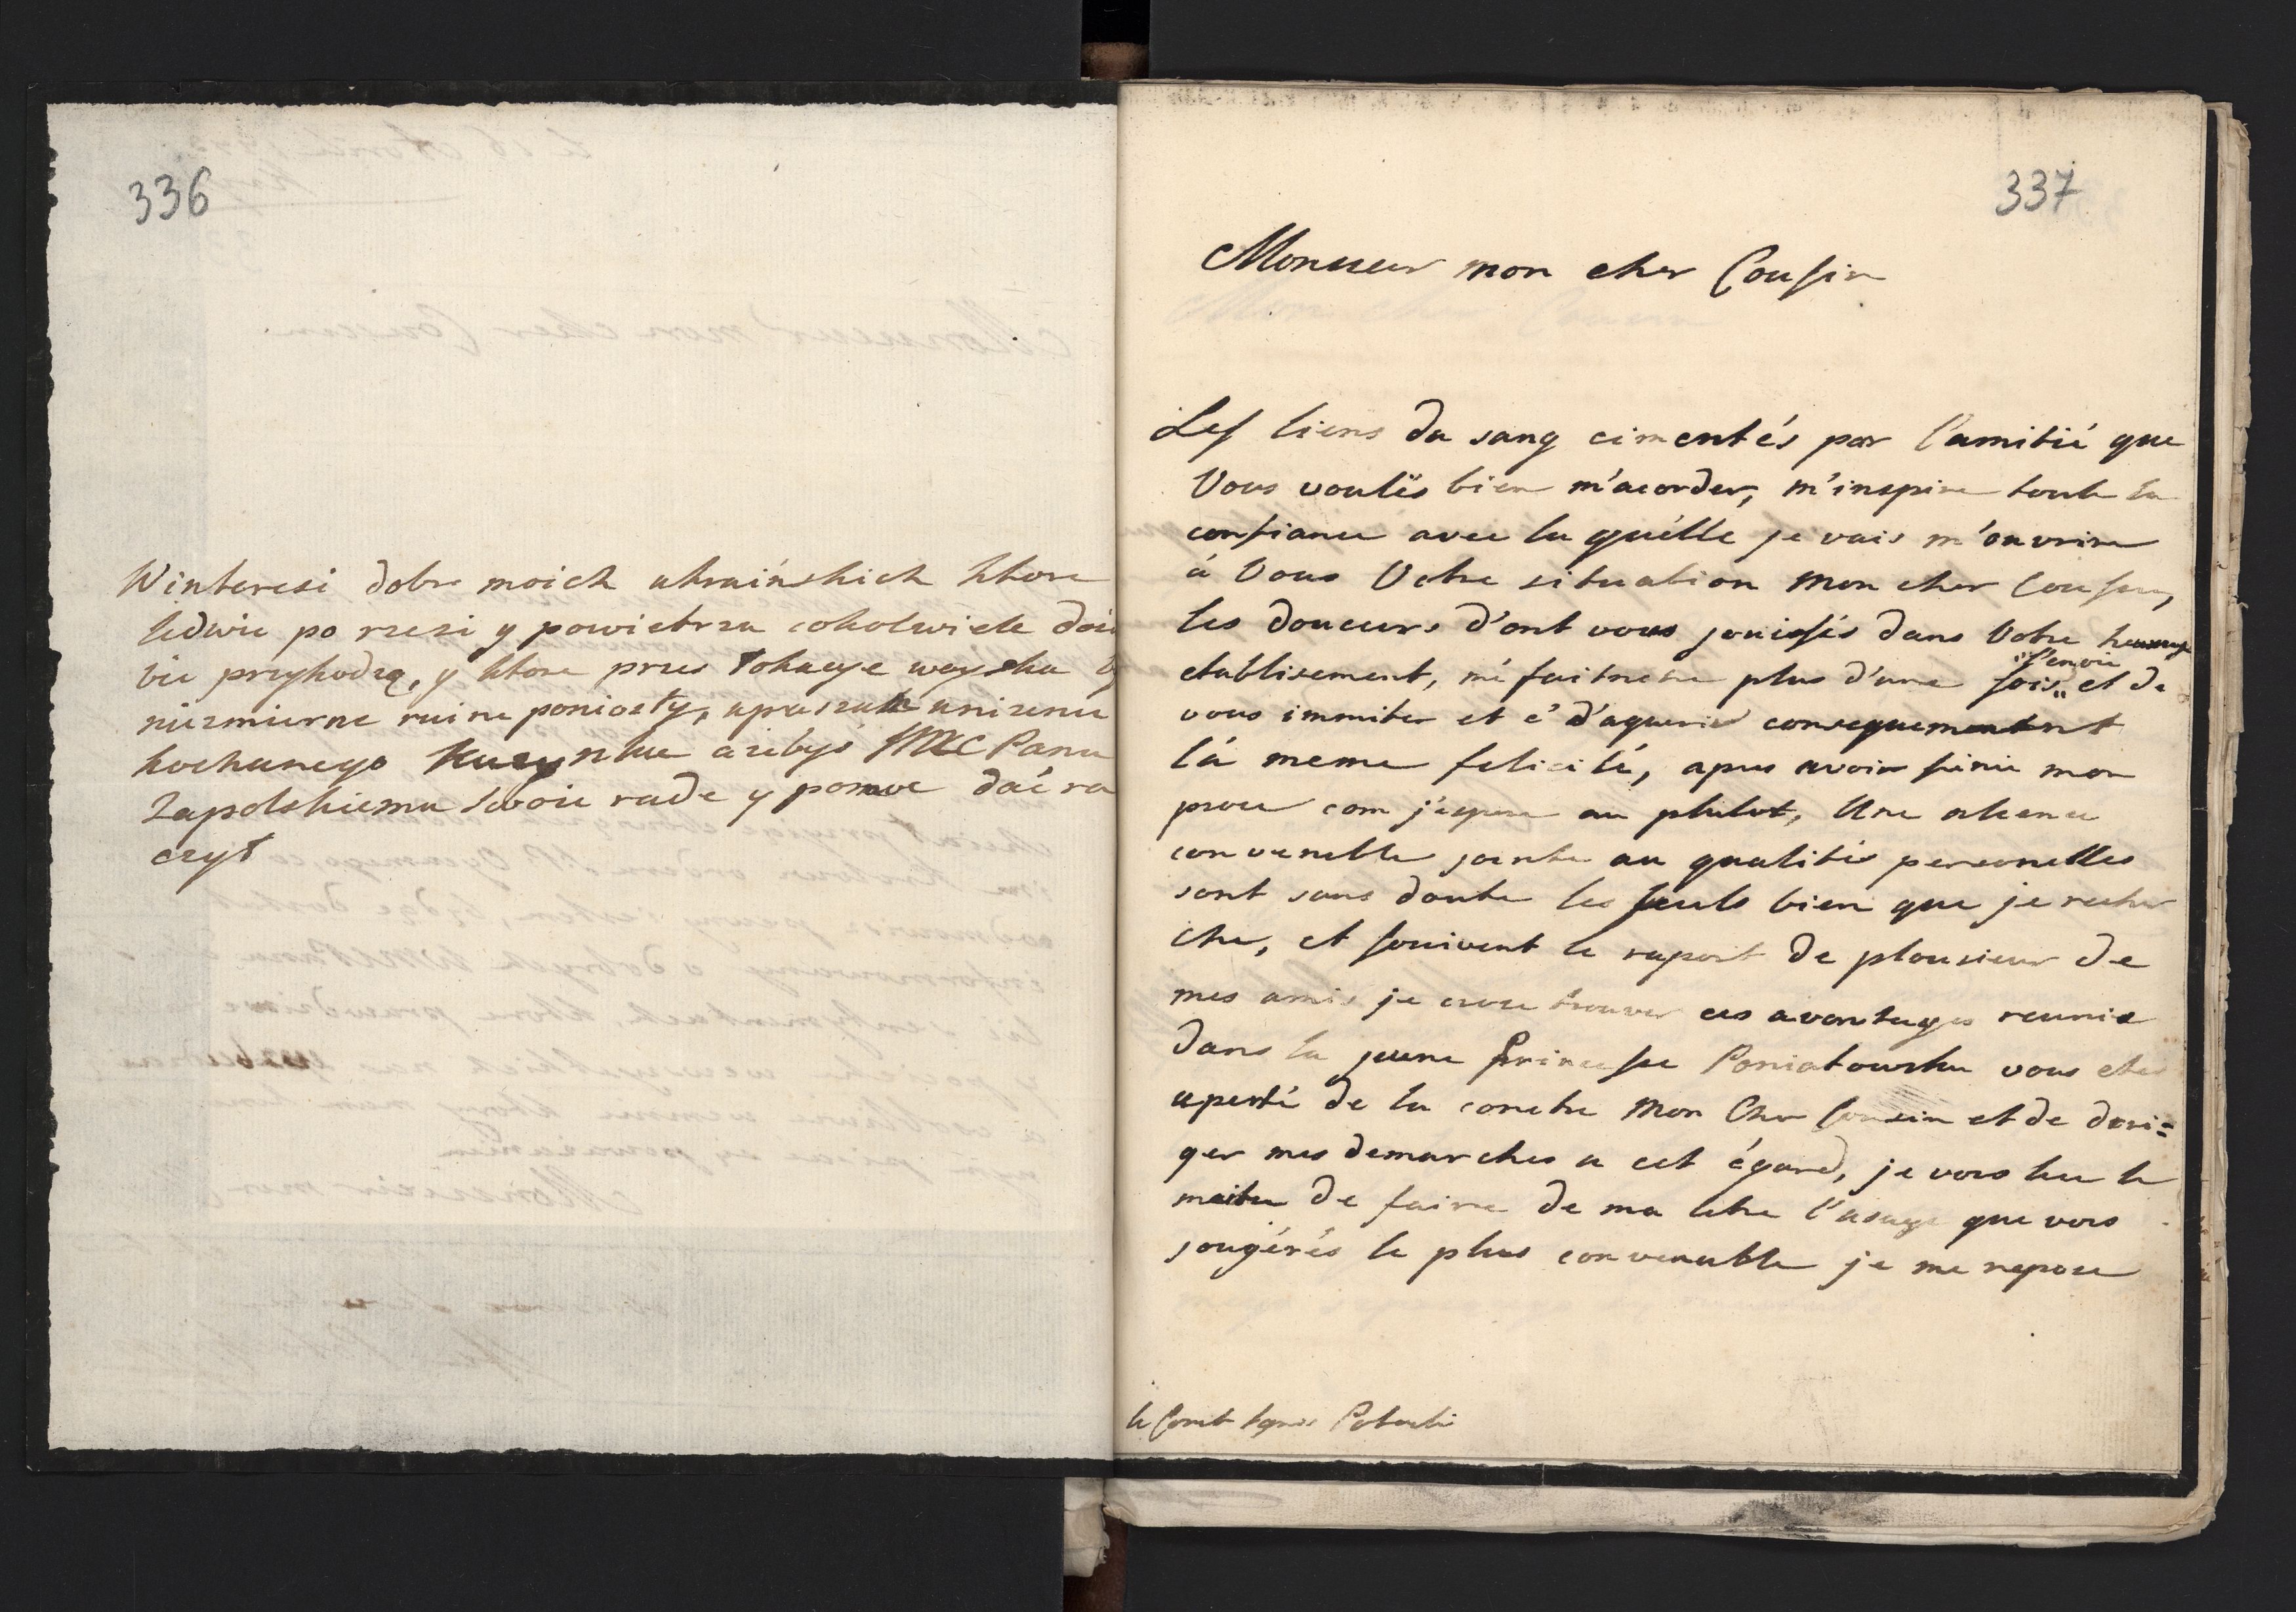 336
Winteresi dobr moich ukraińskich ktore
ledwie po rzezi y powietrzu cokolwiek doie
bie przyhodzą, y ktore przez lokacye woyska
niezmierne ruine poniosły, upraszam unizenie
kochanego Kuzynka azebyś JMC Panu
Zapolskiemu swoie rade y pomoc dać ra
czył
337
Monsieur mon cher Cousin
Les liens du sang cimentés par l'amitié que
Vous voulés bien m'acorder, m'inspire toute la
confiance avec la quélle je vais m'ouvrire
à Vous Votre situation mon cher Cousin,
les douceurs d'ont vous jouissés dans Votre
etablisement, plus d'une fois l'envie et de
vous immiter et d'aquerir consequement
là meme felicité, apres avoir finie mon
proce com j'espere au plutot, Une
convenable jointe au qualités personelles
sont sans doute les seuls bien que je recher
che, et souivent le raport de plousieur de
mes amis je croie trouver ces avantages reunis
dans la jeune Princesse Poniatowska vous etes
aperté de la conetre Mon Cher Cousin et de diri=
ger mes demarches a cet égard, je vous le
maitre de faire de ma letre l'usage que vous
jougérés le plus convenable je me repose
le Comte Ignac Potocki